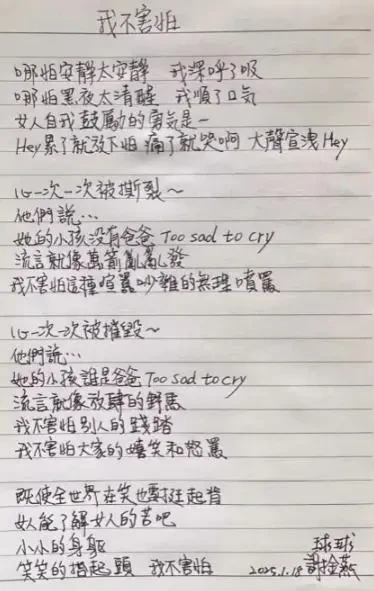 我不害怕
哪怕安靜太安靜 我深呼了吸
哪怕黑夜太清醒 我順了口気
女人自我鼓勵的勇気是一
Hey累了就放下怕 痛了就哭啊 大聲宣洩Hey
心一次一次被撕裂～
他們說…
她的小孩沒有爸爸 Too sad to cry
流言就像萬箭亂亂發
我不害怕這種喧囂吵雜的無理噴罵
心一次一次被摧毀～
他們說…
她的小孩誰是爸爸 Too sad to cry
流言就像放肆的野馬
我不害怕別人的踐踏
我不害怕大家的嬉笑和怒罵
既使全世界在笑也要挺起背
女人能了解女人的苦吧
小小的身軀
笑笑的抬起頭 我不害怕
球球
2025.1.18